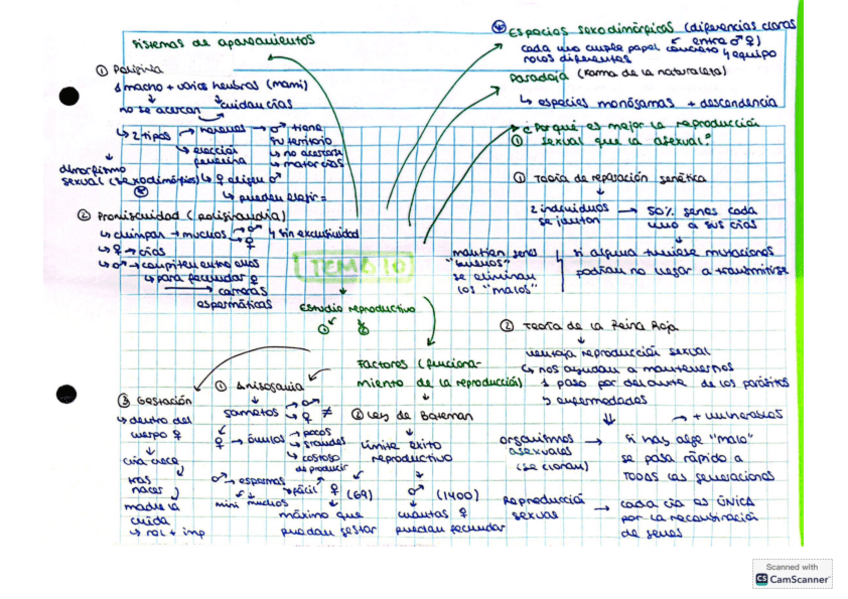 Sistemas de apareamientos
① Poliginia
1 macho + varias hembras (mami)
no se acercan
cuidan crías
↳ 2 tipos → harenes → ♂ tiene su territorio
↳ no acercarse
↳ matar crías
↳ elección femenina
↳ ♀ eligen ♂
↳ pueden elegir =
dimorfismo sexual (sexodimórficos)
② Promiscuidad (poliginandria)
↳ chimpan → muchos ♂ y ♀ sin exclusividad
↳ ♀ → crías
↳ ♂ → compiten entre ellos
↳ para fecundar ♀
→ carreras espermáticas
Espacios sexodimórficos (diferencias claras entre ♂ ♀)
cada uno cumple papel concreto y equipo
roles diferentes
Paradoja (forma de la naturaleza)
↳ especies monógamas + descendencia
¿Por qué es mejor la reproducción
sexual que la asexual?
① Teoría de reparación genética
2 individuos se juntan → 50% genes cada uno a sus crías
si alguna tuviese mutaciones
podrían no llegar a transmitirse
mantien genes "buenos"
se eliminan
los "malos"
② Teoría de la Reina Roja
ventaja reproducción sexual
↳ nos ayudan a mantenernos
1 paso por delante de los parásitos
y enfermedades
→ + vulnerables
organismos asexuales (se clonan) → si hay algo "malo"
se pasa rápido a
todas las generaciones
Reproducción sexual → cada cría es ÚNICA
por la recombinación
de genes
TEMA 10
Estudio reproductivo
Factores (funcionamiento de la reproducción)
① Anisogamia
gametos → ♂ ♀ ≠
♀ → óvulos → pocos
↳ grandes
↳ costoso de producir
♂ → espermas → fácil
mini muchos
② Ley de Bateman
límite éxito reproductivo
♀ (69)
máximo que
puedan gestar
♂ (1400)
cuantas ♀
puedan fecundar
③ Gestación
↳ dentro del cuerpo ♀
cría crece
tras nacer
madre la cuida
↳ rol + imp
Scanned with
CS CamScanner